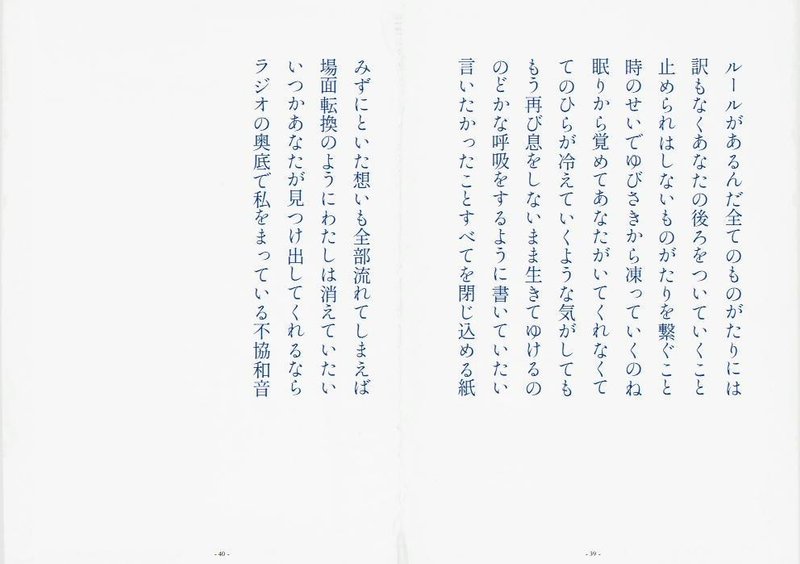 ルールがあるんだ全てのものがたりには
訳もなくあなたの後ろをついていくこと
止められはしないものがたりを繋ぐこと
時のせいでゆびさきから凍っていくのね
眠りから覚めてあなたがいてくれなくて
てのひらが冷えていくような気がしても
もう再び息をしないまま生きてゆけるの
のどかな呼吸をするように書いていたい
言いたかったことすべてを閉じ込める紙
- 39 -
みずにといた想いも全部流れてしまえば
場面転換のようにわたしは消えていたい
いつかあなたが見つけ出してくれるなら
ラジオの奥底で私をまっている不協和音
- 40 -